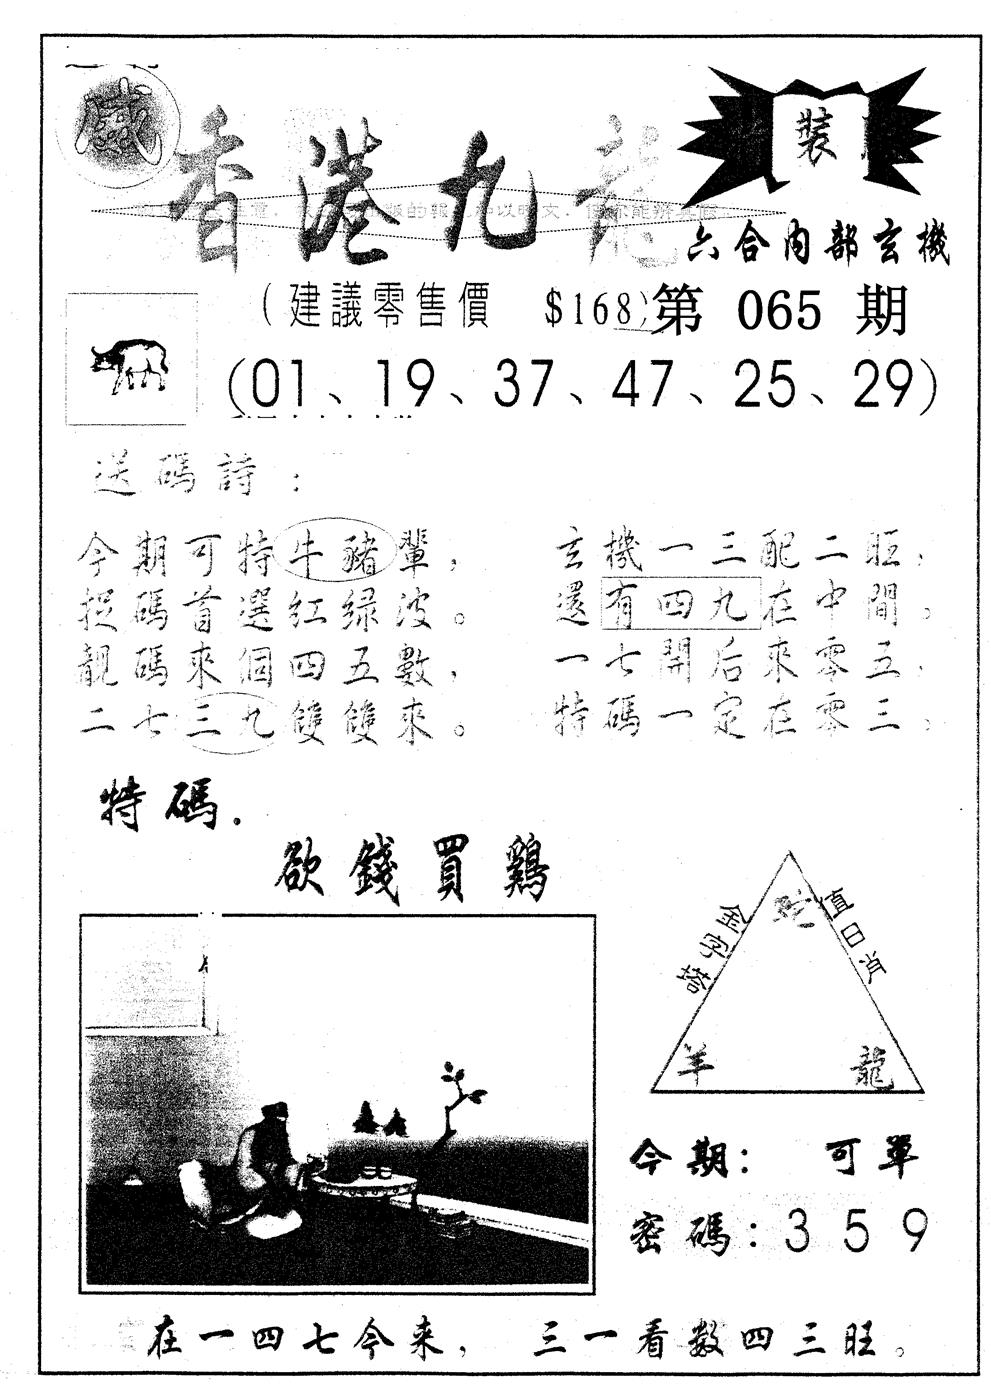 香港九龍
裝
六合内部玄機
(建議零售價 $168)
第 065 期
(01、19、37、47、25、29)
送碼詩:
今期可特牛豬輩,
捉碼首選紅绿波。
靚碼來個四五數,
二七三九雙雙來。
玄機一三配二旺,
還有四九在中間。
一七開后來零五,
特碼一定在零三。
特碼.
欲錢買鷄
金字塔
值日肖
蛇
羊
龍
今期: 可單
密碼:3 5 9
在一四七今来, 三一看数四三旺。